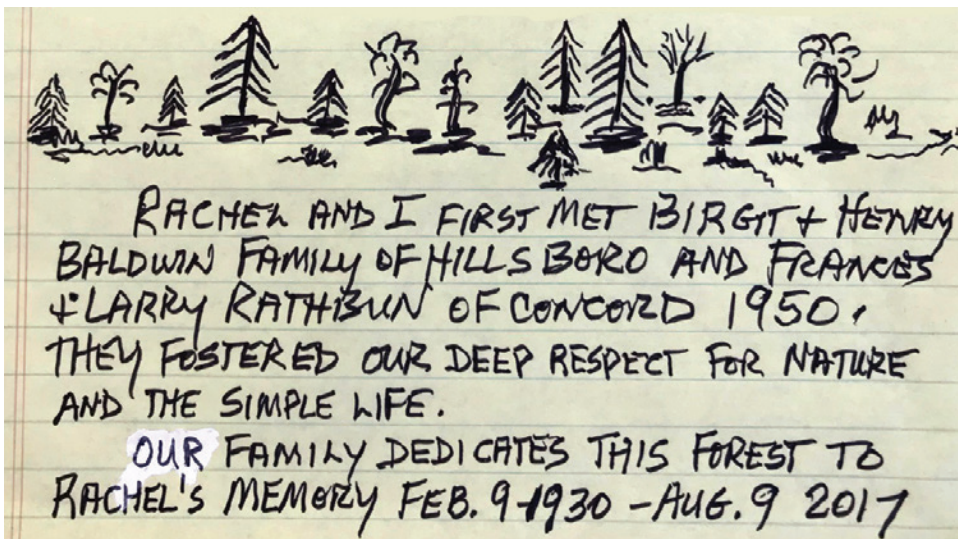 RACHEL AND I FIRST MET BIRGIT + HENRY
BALDWIN FAMILY OF HILLSBORO AND FRANCES
+ LARRY RATHBUN OF CONCORD 1950.
THEY FOSTERED OUR DEEP RESPECT FOR NATURE
AND THE SIMPLE LIFE.
OUR FAMILY DEDICATES THIS FOREST TO
RACHEL'S MEMORY FEB. 9-1930 - AUG. 9 2017